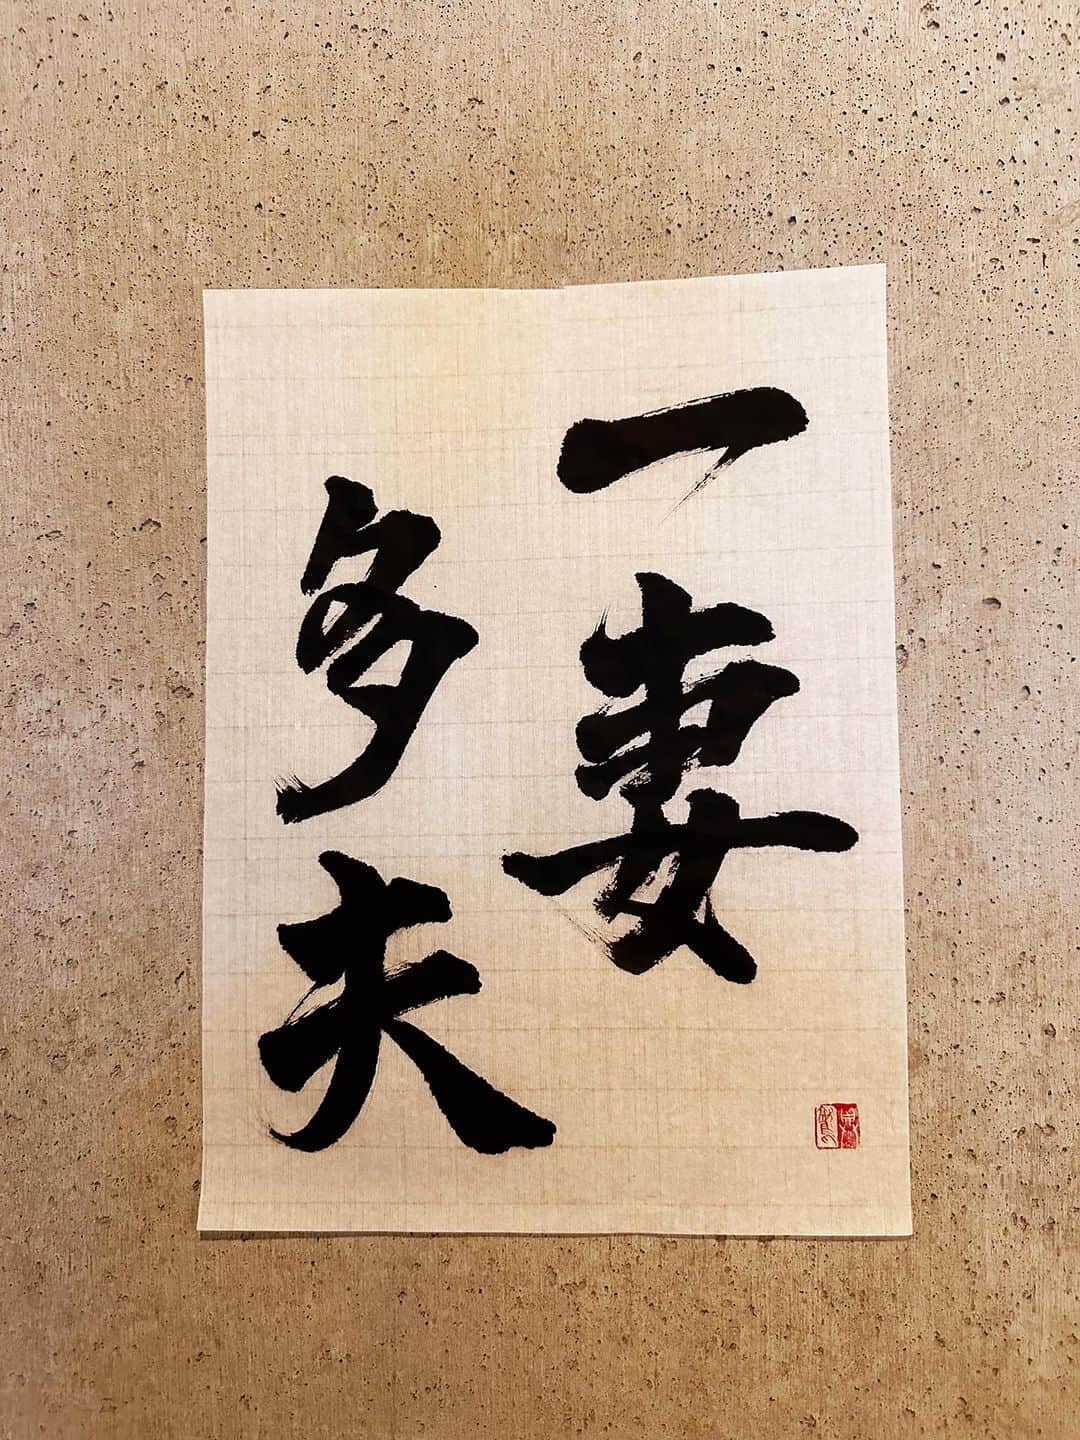 一妻
多夫